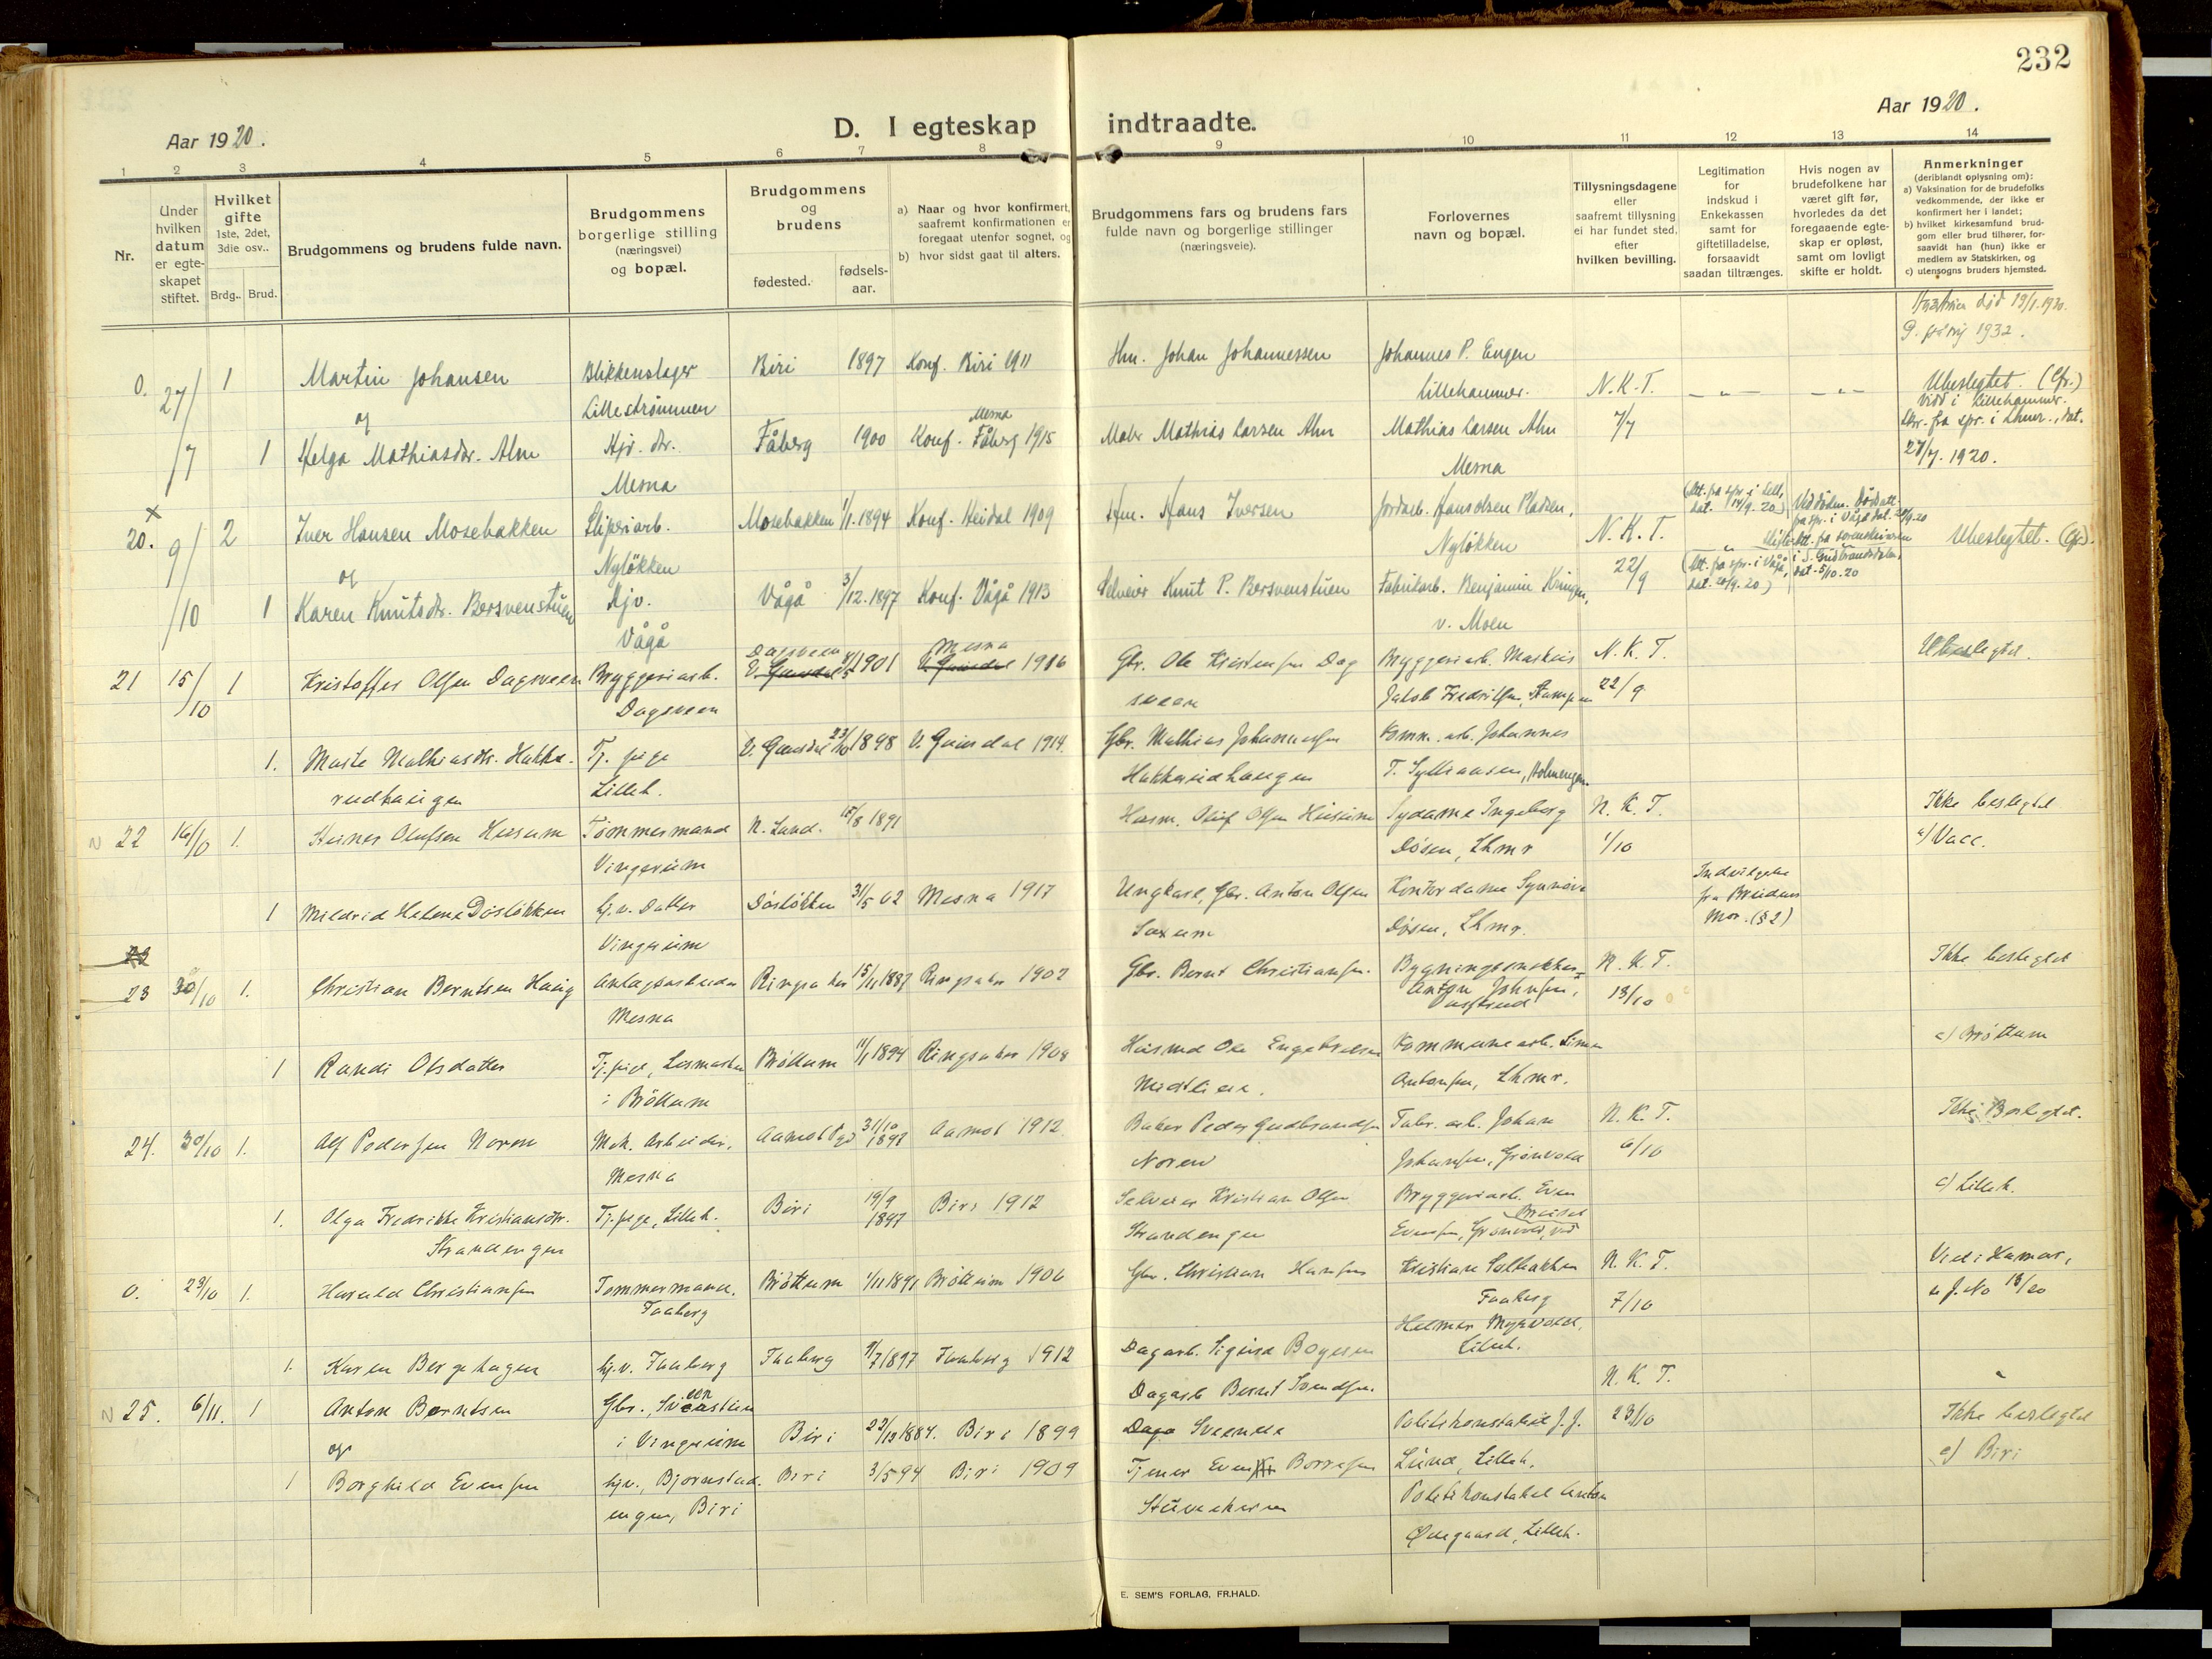 232
Aar 1920.
D. I egteskap indtraadte.
Aar 1920.
1 2 3 4 5 6 7 8 9 10 11 12 13 14
Nr.
Under hvilken datum er egteskapet stiftet.
Hvilket gifte 1ste, 2det, 3die osv..
Brdg.. Brud.
Brudgommens og brudens fulde navn.
Brudgommens borgerlige stilling (næringsvei) og bopæl.
Brudgommens og brudens
fødested.
fødsels-aar.
a) Naar og hvor konfirmert, saafremt konfirmationen er foregaat utenfor sognet, og
b) hvor sidst gaat til alters.
Brudgommens fars og brudens fars fulde navn og borgerlige stillinger (næringsveie).
Forlovernes navn og bopæl.
Tillysningsdagene eller saafremt tillysning ei har fundet sted, efter hvilken bevilling.
Legitimation for indskud i Enkekassen samt for giftetilladelse, forsaavidt saadan tiltrænges.
Hvis nogen av brudefolkene har været gift før, hvorledes da det foregaaende egteskap er opløst, samt om lovligt skifte er holdt.
Anmerkninger (deriblandt oplysning om):
a) Vaksination for de brudefolks vedkommende, der ikke er konfirmert her i landet;
b) hvilket kirkesamfund brudgom eller brud tilhører, forsaavidt han (hun) ikke er medlem av Statskirken, og
c) utensogns bruders hjemsted.
død 19/1.1930.
1932.
0. 27/7 1 Martin Johansen Blikkenslager Biri 1897 Konf. Biri 1911 Hm. Johan Johannessen Johannes P. Engen
Lillestrømmen Lillehammer. N.K.T. Ubeslegtet. (Gfr.)
og Viet i Lillehammer.
1 Helga Mathiasdr. Alm Hjv. dtr. Fåberg 1900 Konf. Fåberg Mesna 1915 Mathias Larsen Alm Mathias Larsen Alm 7/7 fra spr. i Lhmr., dat.
Mesna Mesna 27/7. 1920.
x
20. 9/10 2 Iver Hansen Mosebakken Sliperiarb. Mosebakken 1/1.1894 Konf. Heidal 1909 Hm. Hans Iversen Jordarb. Hans Olsen Pladsen, N.K.T. (Att. fra spr. i Lill, dat. 14/9.20)
og Nyløkken Nyløkken Ubeslegtet. (Gfr.)
1 Karen Knutsdr. Bersvenstuen Hjv. Vågå 3/12.1897 Konf. Vågå 1913 Selveier Knut P. Bersvenstuen Fabrikarb. Benjamin Kringen, 22/9 (Att. fra spr. i Vågå, dat. 20/9.20) dat. 5/10.20
Vågå v. Moen
21 15/10 1 Kristoffer Olsen Dagsveen Bryggeriarb. Dagsveen 1901 Mesna 1916 Gbr. Ole Kristensen Dag Bryggeriarb. N.K.T. Ubeslegtet.
Dagsveen sveen Jakob Fredriksen, 22/9
1. Marte Mathiasdr. Hakke- Tj. pige V. Gausdal 23/10 1898 V. Gausdal 1914. Gbr. Mathias Johannessen Komm. arb. Johannes
rudhaugen Lilleh. Hakkerudhaugen T. Sylliaasen,
N 22 16/10 1. Steinar Olufsen Husum Tømmermand N. Land. 15/8 1891 Husm. Oluf Olsen Husum Sydame Ingeborg N.K.T. Ikke beslegtet
Vingerum Døsen, Lhmr 1/10 a) Vacc.
1 Mildrid Helene Døsløkken hj.v. Datter Døsløkken 31/5 02 Mesna 1917 Ungkarl, Gbr. Anton Olsen Kontordame Synnøve Indvilgelse fra Brudens Mor. (§2)
Vingerum Saxum Døsen, Lhmr.
23 30/10 1. Christian Berntsen Haug Anlægsarbeider Ringsaker 15/11 1887 Ringsaker 1902 Gbr. Bernt Christiansen. Bygningssnekker N.K.T. Ikke beslegtet
Mesna Anton Johnsen, 13/10
1 Randi Olsdatter Tj.pige, Brøttum 11/1 1894 Ringsaker 1908 Husmd Ole Engebretsen Kommunearb. Simen c) Brøttum
i Brøttum Midtlien. Antonsen, Lhmr.
24. 30/10 1. Alf Pedersen Noren Mek. Arbeider, Aamot 31/10 1898 Aamot 1912 Baker Peder Gudbrandsen Fabr. arb. Johan N.K.T. Ikke Beslegtet.
Mesna Noren Johansen, Grønvold 6/10
1. Olga Fredrikke Kristiansdtr. Tj. pige, Lilleh. Biri 19/9 1897 Biri 1912 Selveier Kristian Olsen Bryggeriarb. Even c) Lilleh.
Strandengen Strandengen Evensen, Grønvold, ved
0. 23/10 1. Harald Christiansen Tømmermand. Brøttum 1/11 1891 Brøttum 1906 Gbr. Christian Hansen Kristian Solbakken N.K.T. Viet i Hamar,
Faaberg Faaberg 7/10 J. No 18/20
Helmer Myrvold,
1. Karen Bergehagen hj.v. Faaberg Faaberg 9/7 1897 Faaberg 1912 Dagarb. Sigurd Boyesen Lilleh.
N 25. 6/11. 1 Anton Berntsen Gbr., Sveenstuen Dagarb Bernt Svendsen. N.K.T.
og i Vingerum Biri 22/12 1884. Biri 1899 Sveenden Politikonstabel J.J. 23/10 Ikke beslegtet
1 Borghild Evensen hjv., Bjørnstad- Biri 3/5 94 Biri 1909 Tjener Even Borresen Lund, Lilleh. c) Biri
engen, Biri Politikonstabel Anton
Ødegaard, Lilleh.
E. SEM'S FORLAG, FR.HALD.